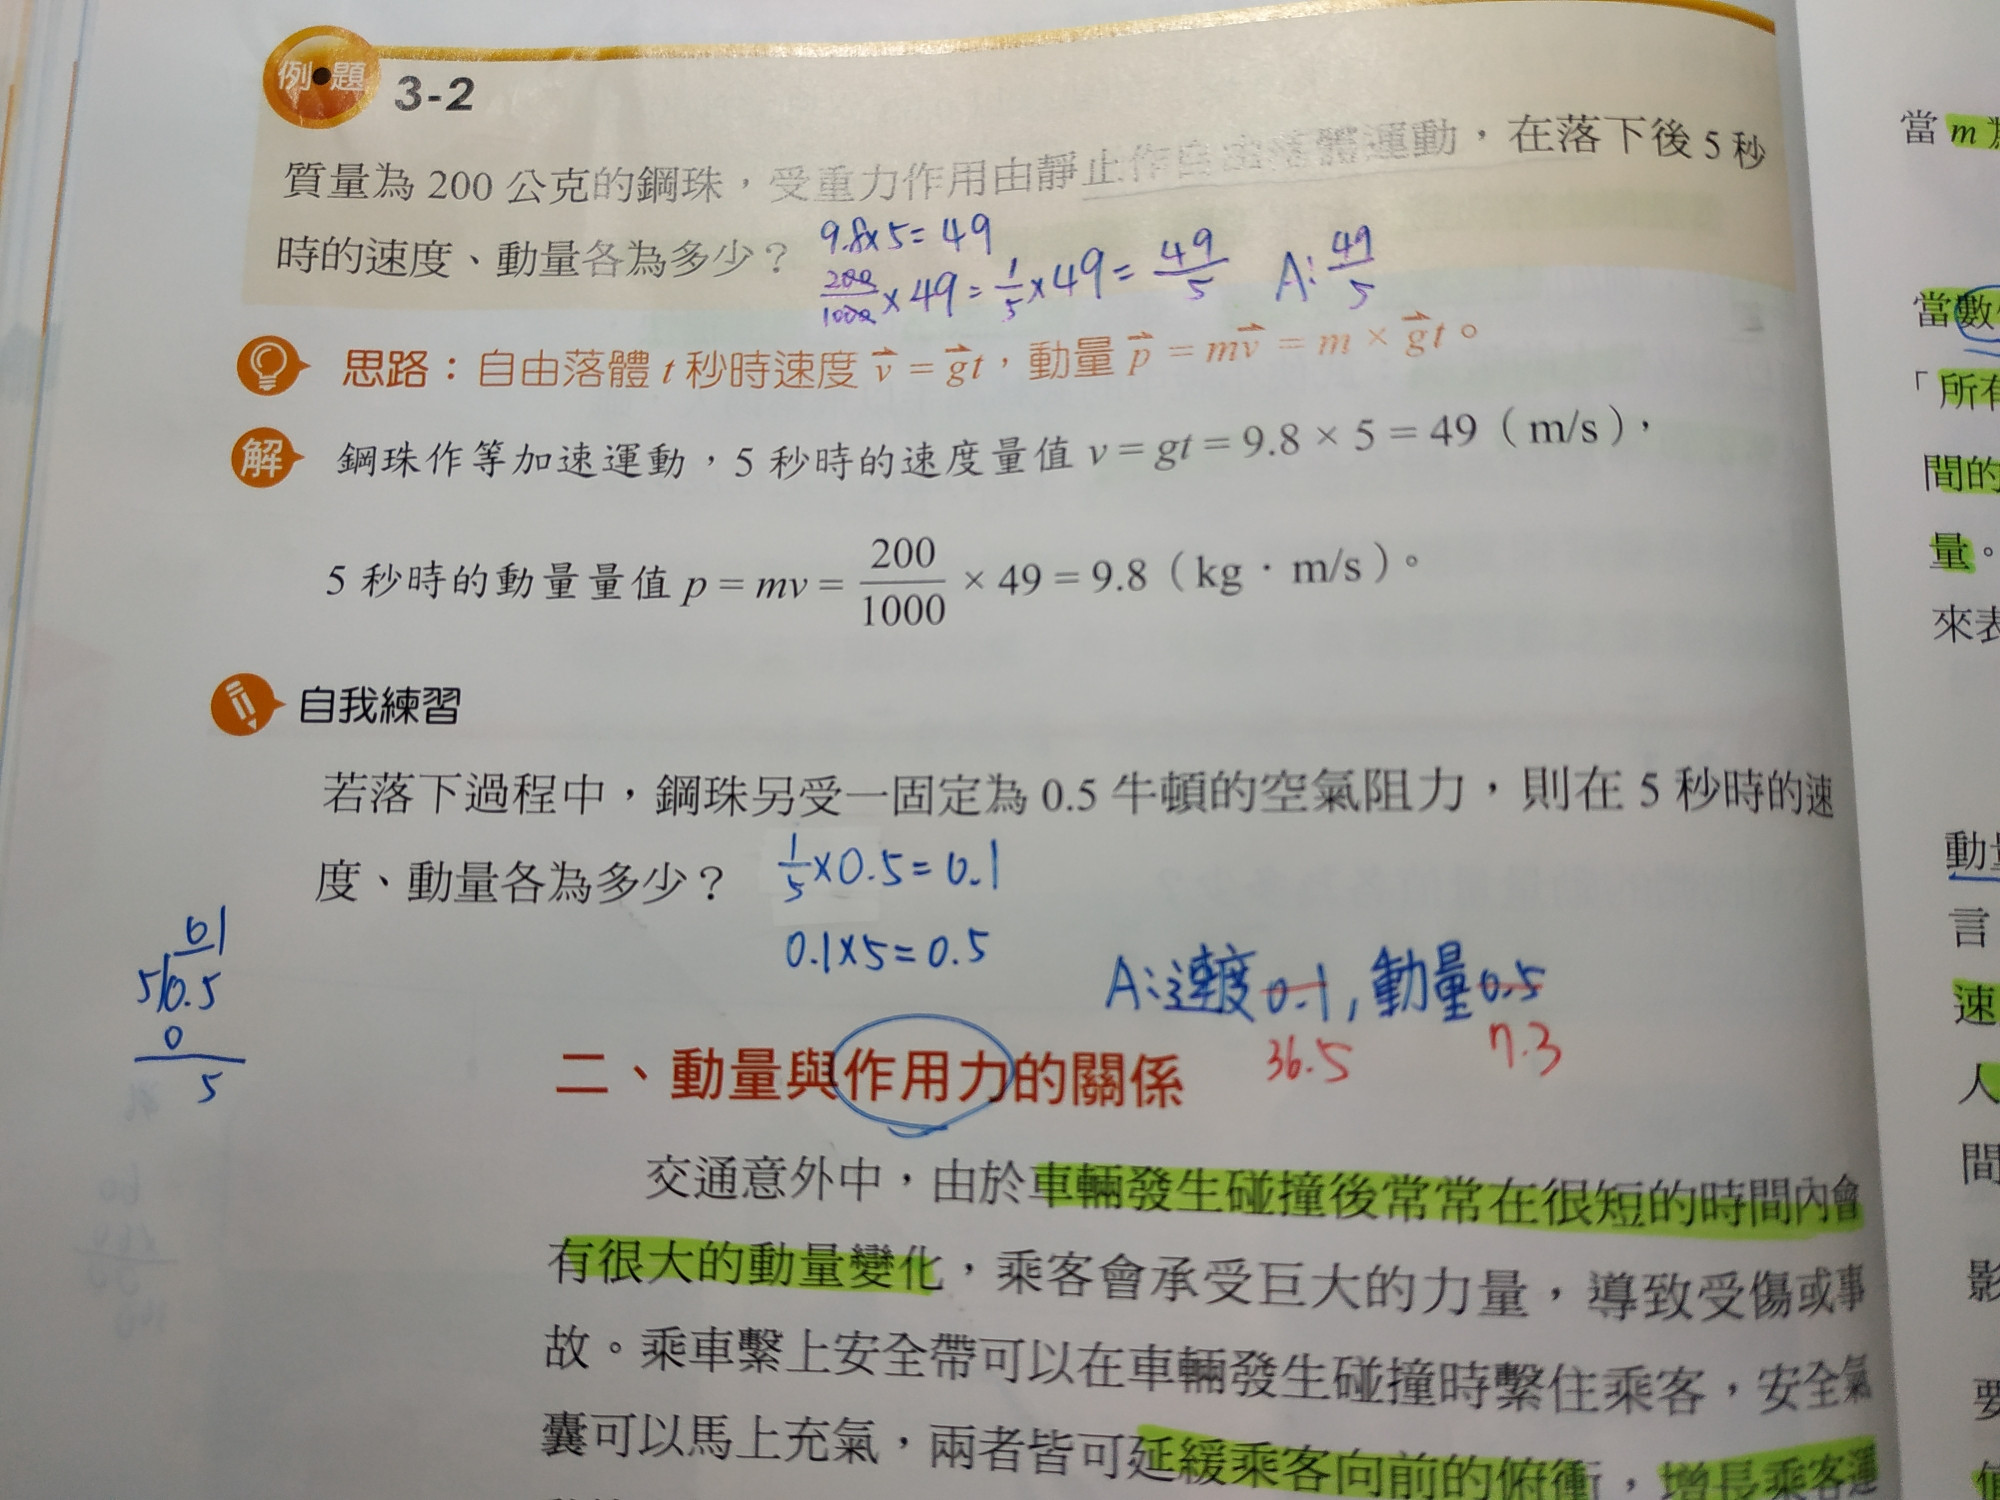 例•題 3-2
質量為 200 公克的鋼珠，受重力作用由靜止作自由落體運動，在落下後 5 秒
時的速度、動量各為多少？
9.8×5=49
200/1000×49=1/5×49=49/5 A:49/5
思路：自由落體 t 秒時速度 v⃗ = g⃗t，動量 p⃗ = mv⃗ = m × g⃗t。
解 鋼珠作等加速運動，5 秒時的速度量值 v = gt = 9.8 × 5 = 49（m/s），
5 秒時的動量量值 p = mv = 200/1000 × 49 = 9.8（kg．m/s）。
自我練習
若落下過程中，鋼珠另受一固定為 0.5 牛頓的空氣阻力，則在 5 秒時的速
度、動量各為多少？
1/5×0.5=0.1
0.1×5=0.5
A:速度0.1,動量0.5
36.5 7.3
01
5 0.5
0
5
二、動量與作用力的關係
交通意外中，由於車輛發生碰撞後常常在很短的時間內會
有很大的動量變化，乘客會承受巨大的力量，導致受傷或事
故。乘車繫上安全帶可以在車輛發生碰撞時繫住乘客，安全氣
囊可以馬上充氣，兩者皆可延緩乘客向前的俯衝，增長乘客運
當 m
當數
「所有
間的
量。
來表
動
言
速
人
間
影
要